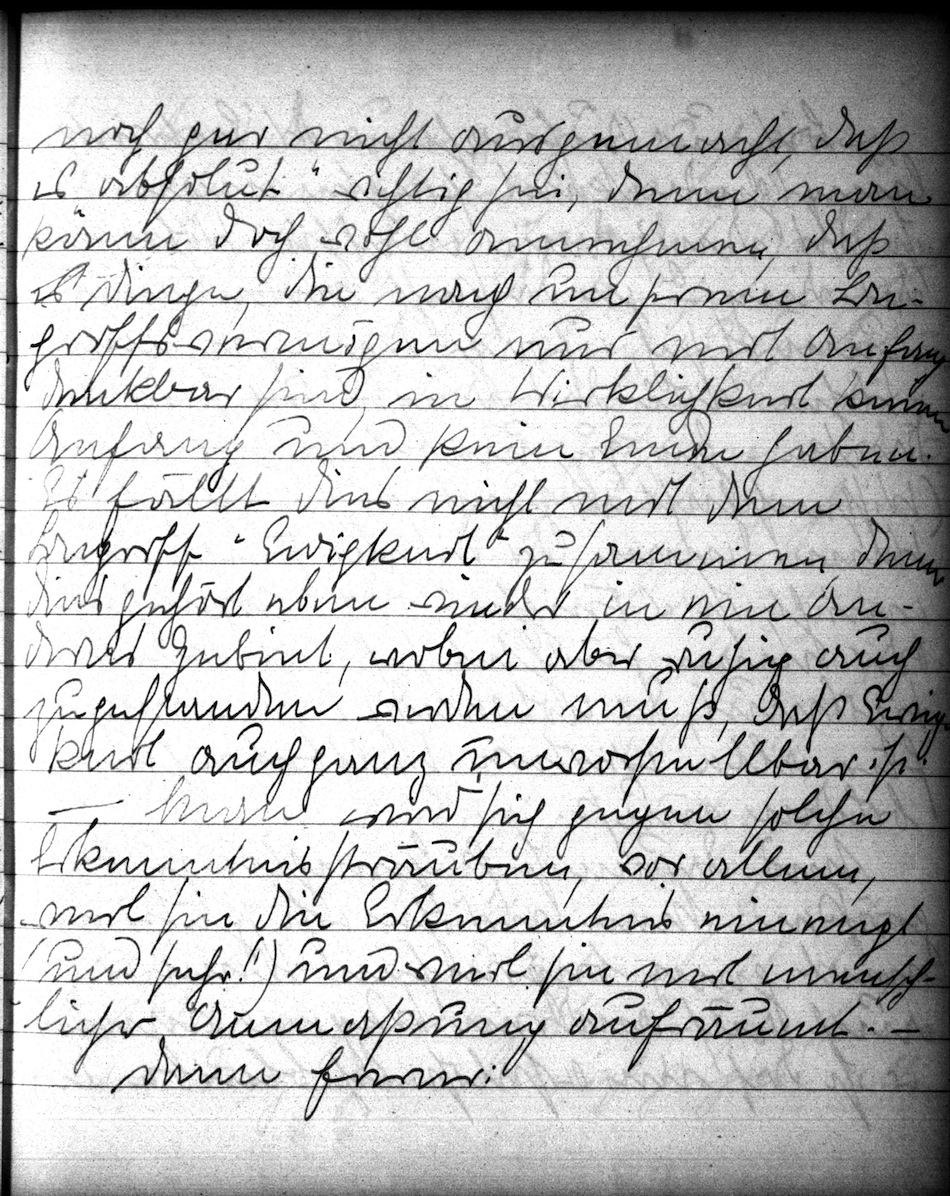 noch gar nicht ausgemacht, daß
es "absolut" richtig sei, denn man
könne doch wohl annehmen, daß
es Dinge, die nach unserem Be-
griffsvermögen nur mit Anfang
denkbar sind, in Wirklichkeit keinen
Anfang und kein Ende haben.
Es fällt dies nicht mit dem
Begriff "Ewigkeit" zusammen, denn
dies gehört eben wieder in ein an-
deres Gebiet, wobei aber ruhig auch
zugestanden werden muß, daß Ewig-
keit auch ganz unvorstellbar ist.
— Man wird sich gegen solche
Erkenntnis sträuben, vor allem,
weil sie die Erkenntnis einengt
(und sehr!) und weil sie mit mensch-
licher Anmaßung aufräumt. —
Denn ferner: